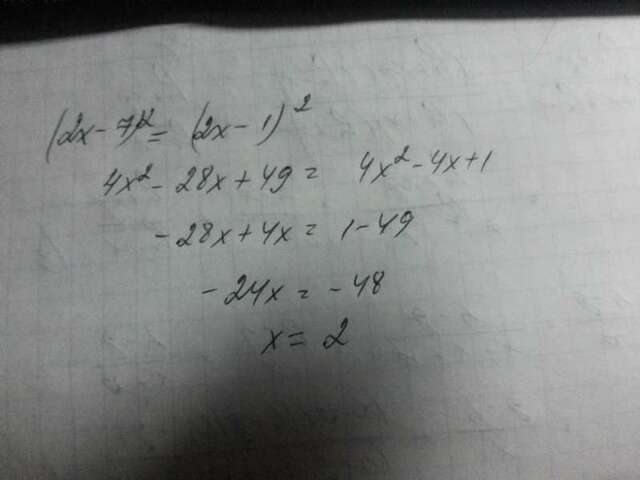 (2x-7)² = (2x-1)²
4x² - 28x + 49 = 4x² - 4x + 1
-28x + 4x = 1 - 49
-24x = -48
x = 2